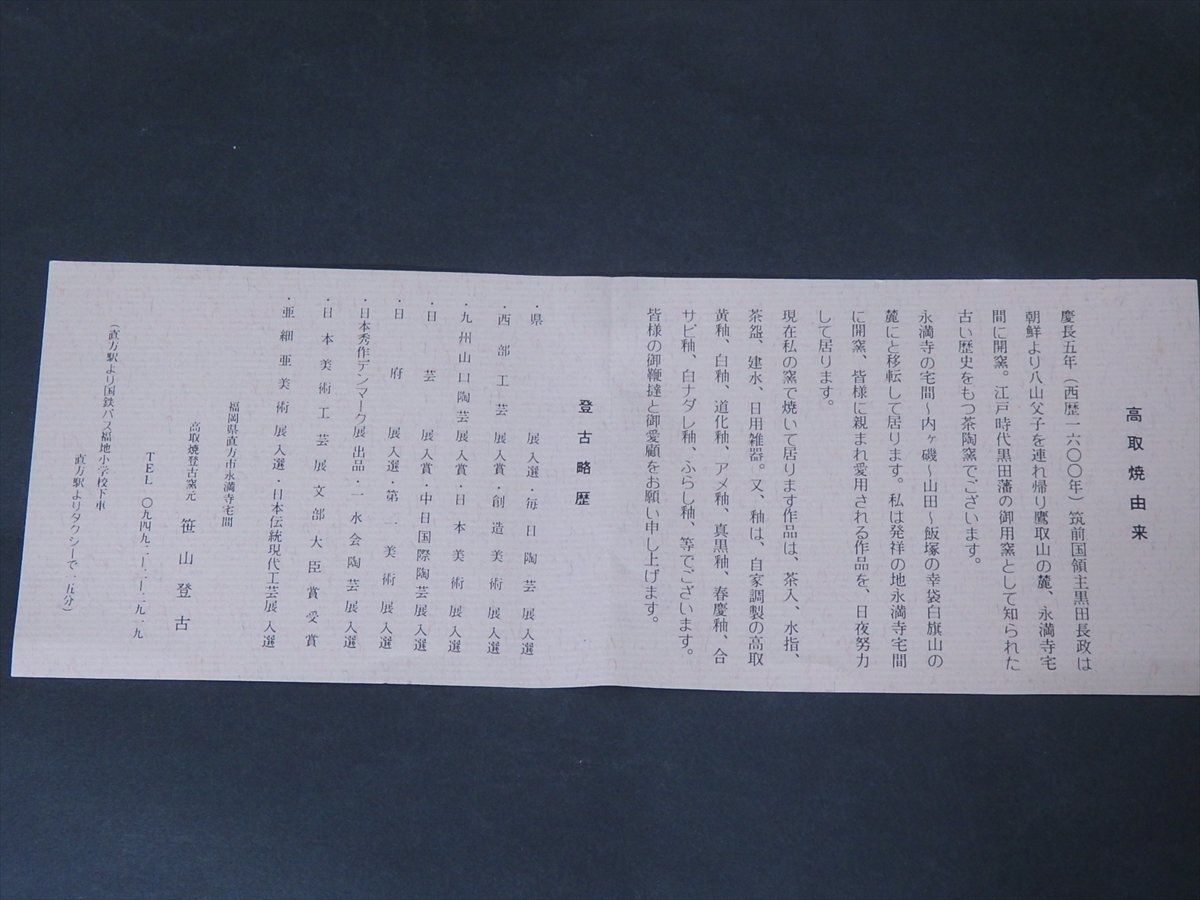 高取焼由来
慶長五年（西歴一六〇〇年）筑前国領主黒田長政は
朝鮮より八山父子を連れ帰り鷹取山の麓、永満寺宅
間に開窯。江戸時代黒田藩の御用窯として知られた
古い歴史をもつ茶陶窯でございます。
永満寺の宅間〜内ヶ磯〜山田〜飯塚の幸袋白旗山の
麓にと移転して居ります。私は発祥の地永満寺宅間
に開窯、皆様に親まれ愛用される作品を、日夜努力
して居ります。
現在私の窯で焼いて居ります作品は、茶入、水指、
茶盌、建水、日用雑器。又、釉は、自家調製の高取
黄釉、白釉、道化釉、アメ釉、真黒釉、春慶釉、合
サビ釉、白ナダレ釉、ふらし釉、等でございます。
皆様の御鞭撻と御愛顧をお願い申し上げます。
登古略歴
・県展入選・毎日陶芸展入選
・西部工芸展入賞・創造美術展入選
・九州山口陶芸展入賞・日本美術展入選
・日芸展入賞・中日国際陶芸展入選
・日府展入選・第一美術展入選
・日本秀作デンマーク展出品・一水会陶芸展入選
・日本美術工芸展文部大臣賞受賞
・亜細亜美術展入選・日本伝統現代工芸展入選
福岡県直方市永満寺宅間
高取焼登古窯元 笹山登古
TEL 〇九四九二―二―二九一九
（直方駅より国鉄バス福地小学校下車
直方駅よりタクシーで一五分）